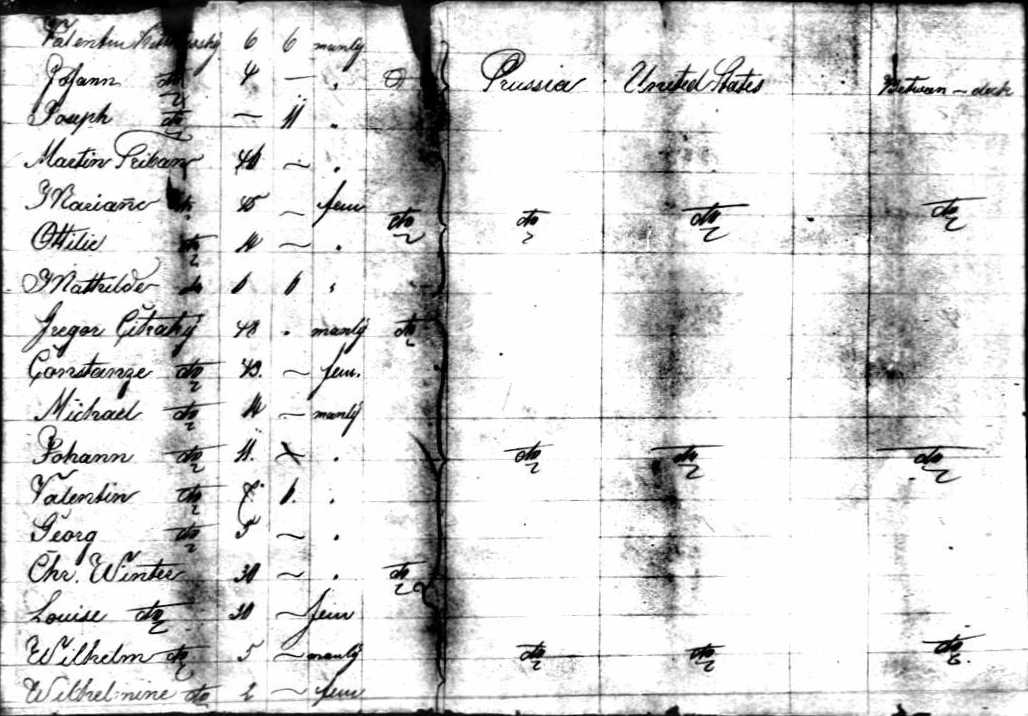 Valentin 6 6 manly
Johann do 4 — " Prussia United States Between-deck
Joseph do — 11 "
Martin — "
Mariane do 45 — fem do do do do
Ottilie do — "
Mathilde do 6 6 "
Gregor 48 " manly do
Constanze do 43. — fem.
Michael do — manly
Johann do 11. "  do do do
Valentin do 6. "
Georg do 5 — "
Chr. Winter 30 — " do
Louise do 30 — fem
Wilhelm do 5 — manly do do do
Wilhelmine do 2 — fem